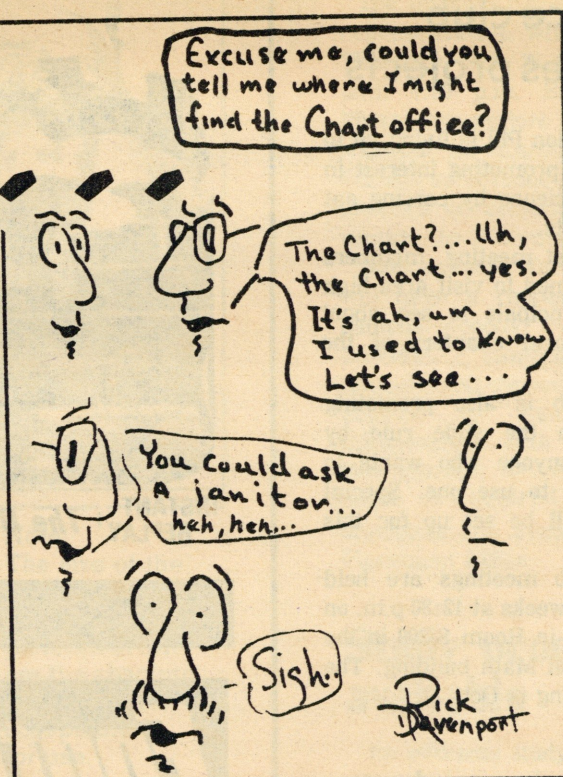 Excuse me, could you
tell me where I might
find the Chart office?
The Chart?...Uh,
the Chart...yes.
It's ah, um...
I used to know
Let's see...
You could ask
A janitor...
heh, heh...
Sigh..
Rick
Davenport